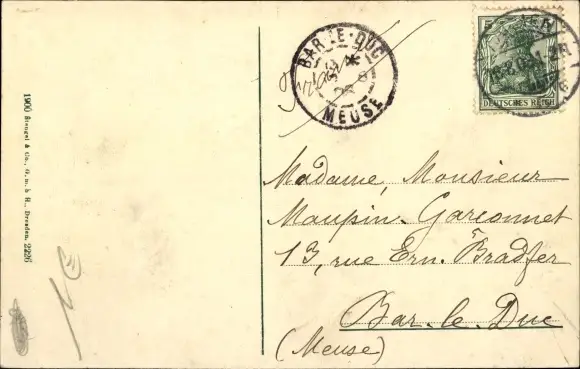 1900 Stengel & Co., G. m. b H., Dresden. 2226
BAR-LE-DUC
MEUSE
DEUTSCHES REICH
Madame, Monsieur
Maupin-Garconnet
13, rue Ern. Bradfer
Bar-le-Duc
(Meuse)